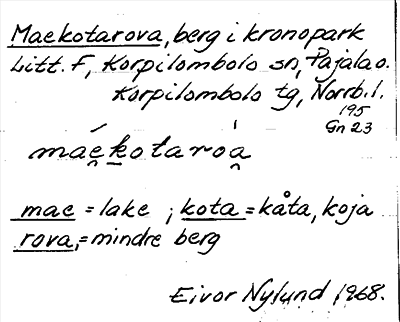 Maekotarova, berg i kronopark
Litt. F, Korpilombolo sn, Pajala o.
Korpilombolo tg, Norrb. l.
195
Gn 23
máe̯kotaroa̯
mae = lake ; kota = kåta, koja
rova, = mindre berg
Eivor Nylund 1968.